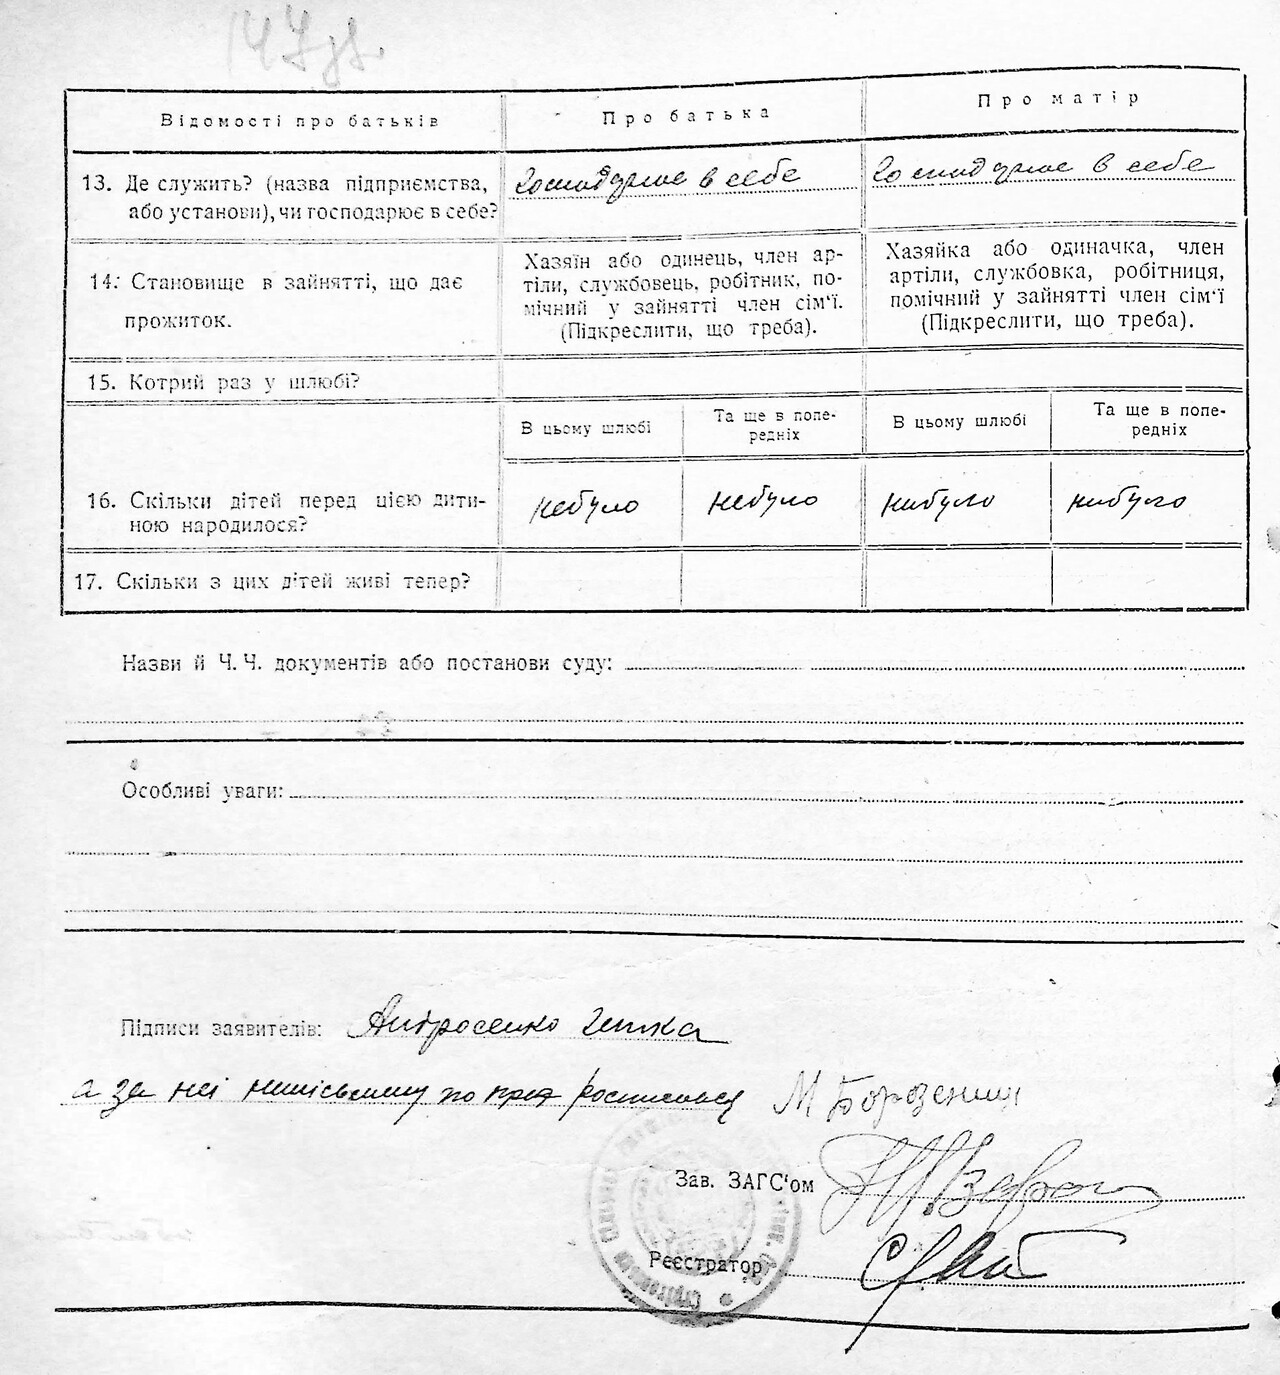 147 зв.
Відомості про батьків
Про батька
Про матір
13. Де служить? (назва підприємства,
або установи), чи господарює в себе?
Господарює в себе
Господарює в себе
14. Становище в зайнятті, що дає
прожиток.
Хазяїн або одинець, член ар-
тіли, службовець, робітник, по-
мічний у зайнятті член сім'ї.
(Підкреслити, що треба).
Хазяйка або одиначка, член
артіли, службовка, робітниця,
помічний у зайнятті член сім'ї
(Підкреслити, що треба).
15. Котрий раз у шлюбі?
В цьому шлюбі
Та ще в попе-
редніх
В цьому шлюбі
Та ще в попе-
редніх
16. Скільки дітей перед цією дити-
ною народилося?
небуло
небуло
нибуло
нибуло
17. Скільки з цих дітей живі тепер?
Назви й Ч. Ч. документів або постанови суду:
Особливі уваги:
Підписи заявителів: Андросенко
а за неї неписьмену по
Зав. ЗАГС'ом
Реєстратор